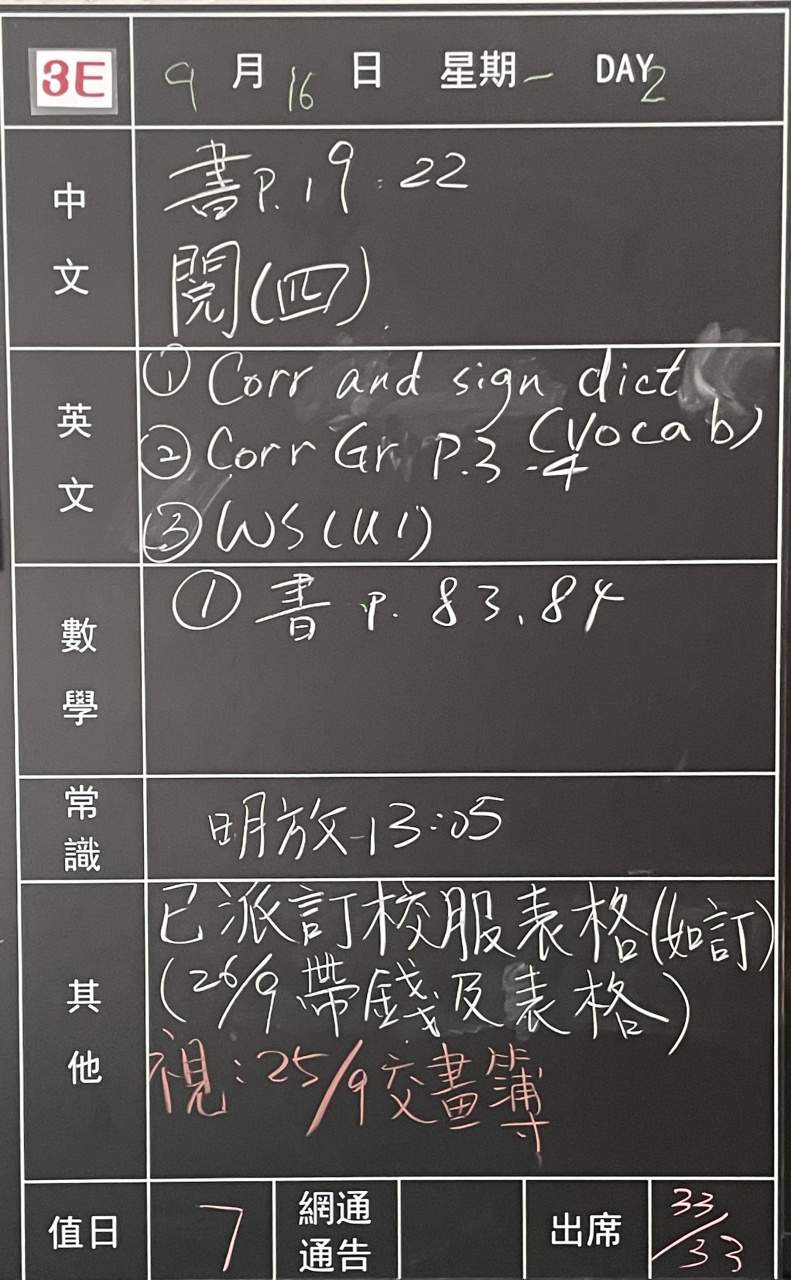 3E 9月16日 星期一 DAY2
中文
書P.19.22
閱(四)
英文
① Corr and sign dict
② Corr Gr P.3-4 (Vocab)
③ WS(U1)
數學
① 書 p. 83、84
常識
明放 13:05
其他
已派訂校服表格(如訂)
(26/9帶錢及表格)
視:25/9交畫簿
值日 7 網通通告 出席 33/33